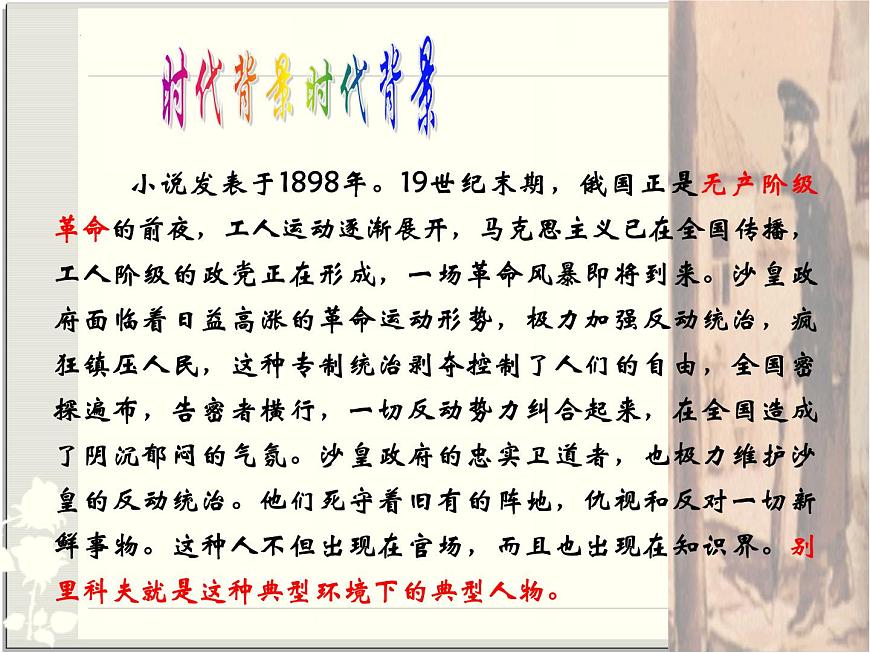 时代背景时代背景
小说发表于1898年。19世纪末期，俄国正是无产阶级
革命的前夜，工人运动逐渐展开，马克思主义已在全国传播，
工人阶级的政党正在形成，一场革命风暴即将到来。沙皇政
府面临着日益高涨的革命运动形势，极力加强反动统治，疯
狂镇压人民，这种专制统治剥夺控制了人们的自由，全国密
探遍布，告密者横行，一切反动势力纠合起来，在全国造成
了阴沉郁闷的气氛。沙皇政府的忠实卫道者，也极力维护沙
皇的反动统治。他们死守着旧有的阵地，仇视和反对一切新
鲜事物。这种人不但出现在官场，而且也出现在知识界。别
里科夫就是这种典型环境下的典型人物。